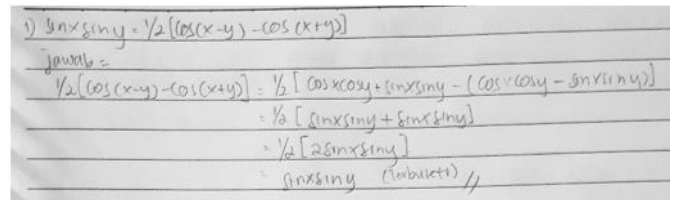 1) sinx siny = 1/2 [cos(x-y) - cos(x+y)]
jawab =
1/2 [cos(x-y) - cos(x+y)] = 1/2 [cosxcosy + sinxsiny - (cosxcosy - sinxsiny)]
= 1/2 [sinxsiny + sinxsiny]
= 1/2 [2sinxsiny]
= sinxsiny (Terbukti) //